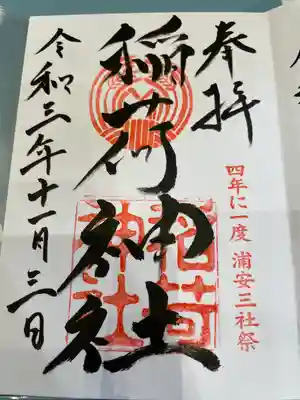 奉拝
四年に一度 浦安三社祭
稲荷神社
稲荷
神社
令和三年十一月三日